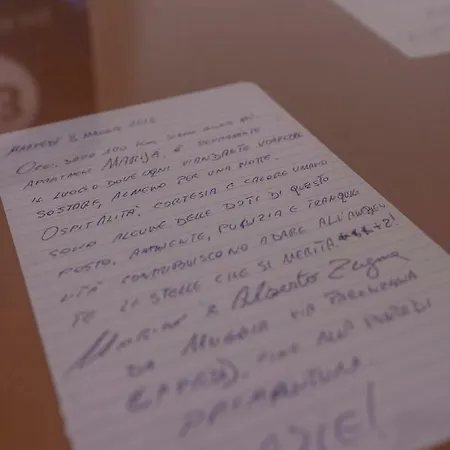 MARTEDÌ 8 MAGGIO 2018
OGGI, DOPO 100 KM SIAMO ARRIVATI
APARTMENT MARIJA, È SICURAMENTE
IL LUOGO DOVE OGNI VIANDANTE VORREBBE
SOSTARE, ALMENO PER UNA NOTTE.
OSPITALITÀ, CORTESIA E CALORE UMANO
SONO ALCUNE DELLE DOTI DI QUESTO
POSTO, AMBIENTE, PULIZIA E TRANQUIL
LITÀ CONTRIBUISCONO A DARE ALL'AMBIEN
TE LE STELLE CHE SI MERITA +2!
& Alberto
DA MUGGIA VIA PARENZANA
FINO ALLA
PREMANTURA.